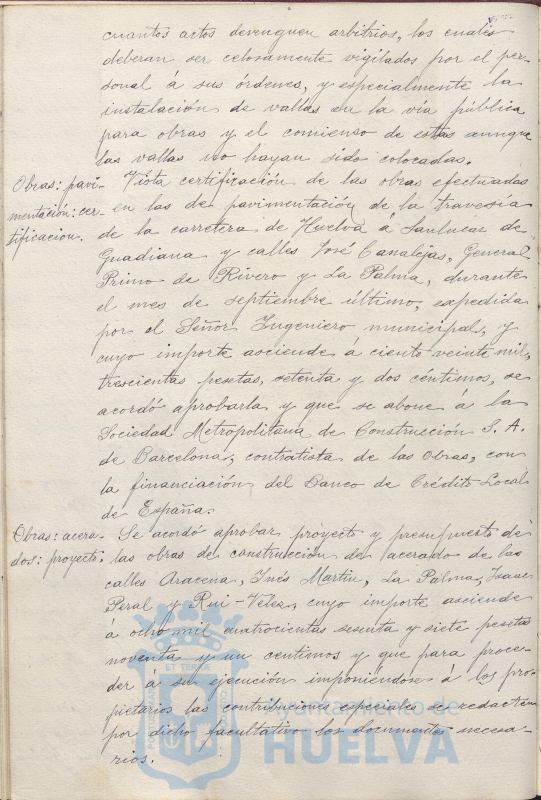 cuantos actos devenguen arbitrios, los cuales
deberan ser celosamente vigilados por el per-
sonal á sus órdenes, y especialmente la
instalación de vallas en la via pública
para obras y el comienso de estas aunque
las vallas no hayan sido colocadas.
Obras: pavi-
mentación: cer-
tificacion.
Vista certificación de las obras efectuadas
en las de pavimentación de la travesia
de la carretera de Huelva á Sanlucar de
Guadiana y calles José Canalejas, General
Primo de Rivero y La Palma, durante
el mes de septiembre último, expedida
por el Señor Ingeniero municipal, y
cuyo importe asciende á ciento veinte mil,
trescientas pesetas, setenta y dos céntimos, se
acordó aprobarla y que se abone á la
Sociedad Metropolitana de Construcción S. A.
de Barcelona, contratista de las obras, con
la financiación del Banco de Crédito Local
de España.
Obras: acera-
dos: proyecto.
Se acordó aprobar proyecto y presupuesto de
las obras de construcción de acerado de las
calles Aracena, Inés Martin, La Palma, Isaac
Peral y Rui-Velez, cuyo importe asciende
á ocho mil cuatrocientas sesenta y siete pesetas
noventa y un centimos y que para proce-
der á su ejecución imponiéndose á los pro-
pietarios las contribuciones especiales se redacten
por dicho facultativo los documentos necesa-
rios.
Ayuntamiento de
HUELVA